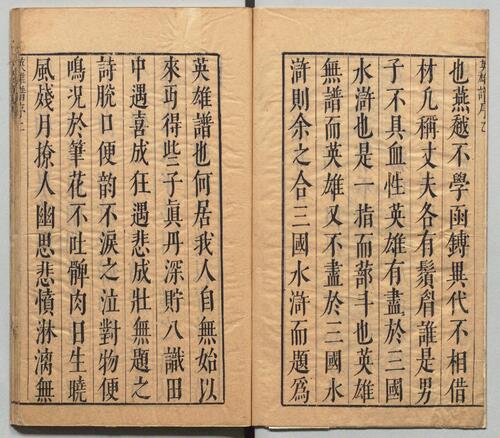 英雄譜序
也燕越不學函鎛異代不相借
材凡稱丈夫各有鬚眉誰是男
子不具血性英雄有盡於三國
水滸也是一指而蔀斗也英雄
無譜而英雄又不盡於三國水
滸則余之合三國水滸而題爲
英雄譜也何居我人自無始以
來丐得些子眞丹深貯八識田
中遇喜成狂遇悲成壯無題之
詩脫口便韵不淚之泣對物便
鳴况於筆花不吐髀肉日生曉
風殘月撩人幽思悲憤淋漓無
英雄譜序二